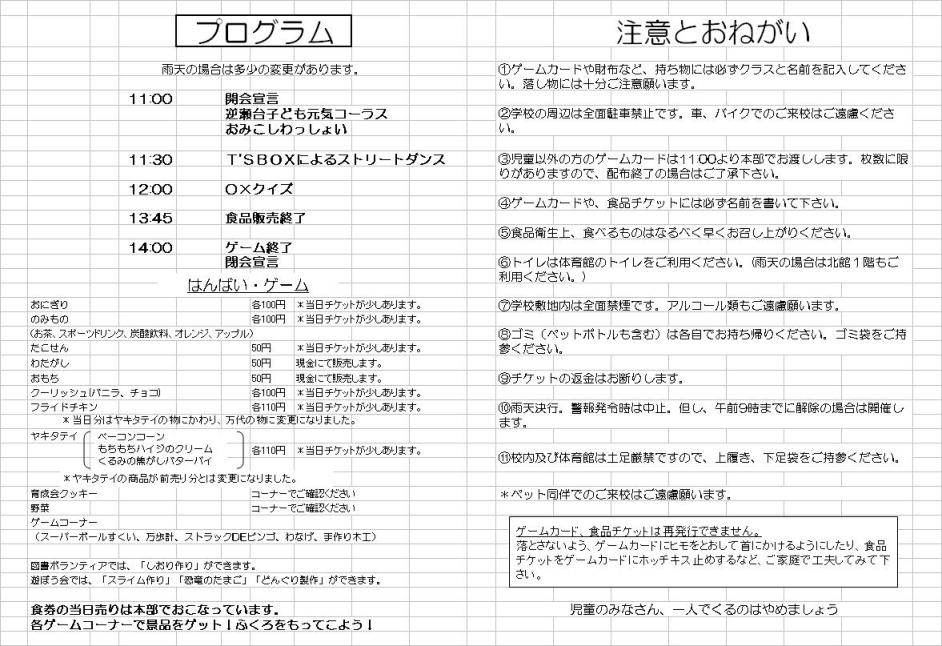 プログラム
雨天の場合は多少の変更があります。
11:00 開会宣言
逆瀬台子ども元気コーラス
おみこしわっしょい
11:30 T'SBOXによるストリートダンス
12:00 ○×クイズ
13:45 食品販売終了
14:00 ゲーム終了
閉会宣言
はんばい・ゲーム
おにぎり 各100円 *当日チケットが少しあります。
のみもの 各100円 *当日チケットが少しあります。
(お茶、スポーツドリンク、炭酸飲料、オレンジ、アップル)
たこせん 50円 *当日チケットが少しあります。
わたがし 50円 現金にて販売します。
おもち 50円 現金にて販売します。
クーリッシュ(バニラ、チョコ) 各100円 *当日チケットが少しあります。
フライドチキン 各110円 *当日チケットが少しあります。
*当日分はヤキタテイの物にかわり、万代の物に変更になりました。
ヤキタテイ ベーコンコーン
もちもちハイジのクリーム 各110円 *当日チケットが少しあります。
くるみの焦がしバターパイ
*ヤキタテイの商品が前売り分とは変更になりました。
育成会クッキー コーナーでご確認ください
野菜 コーナーでご確認ください
ゲームコーナー
(スーパーボールすくい、万歩計、ストラックDEビンゴ、わなげ、手作り木工)
図書ボランティアでは、「しおり作り」ができます。
遊ぼう会では、「スライム作り」「恐竜のたまご」「どんぐり製作」ができます。
食券の当日売りは本部でおこなっています。
各ゲームコーナーで景品をゲット!ふくろをもってこよう!
注意とおねがい
①ゲームカードや財布など、持ち物には必ずクラスと名前を記入してくださ
い。落し物には十分ご注意願います。
②学校の周辺は全面駐車禁止です。車、バイクでのご来校はご遠慮くださ
い。
③児童以外の方のゲームカードは11:00より本部でお渡しします。枚数に限
りがありますので、配布終了の場合はご了承下さい。
④ゲームカードや、食品チケットには必ず名前を書いて下さい。
⑤食品衛生上、食べるものはなるべく早くお召し上がりください。
⑥トイレは体育館のトイレをご利用ください。(雨天の場合は北館1階もご
利用ください。)
⑦学校敷地内は全面禁煙です。アルコール類もご遠慮願います。
⑧ゴミ(ペットボトルも含む)は各自でお持ち帰りください。ゴミ袋をご持
参ください。
⑨チケットの返金はお断りします。
⑩雨天決行。警報発令時は中止。但し、午前9時までに解除の場合は開催し
ます。
⑪校内及び体育館は土足厳禁ですので、上履き、下足袋をご持参ください。
*ペット同伴でのご来校はご遠慮願います。
ゲームカード、食品チケットは再発行できません。
落とさないよう、ゲームカードにヒモをとおして首にかけるようにしたり、食品
チケットをゲームカードにホッチキス止めするなど、ご家庭で工夫してみて下
さい。
児童のみなさん、一人でくるのはやめましょう